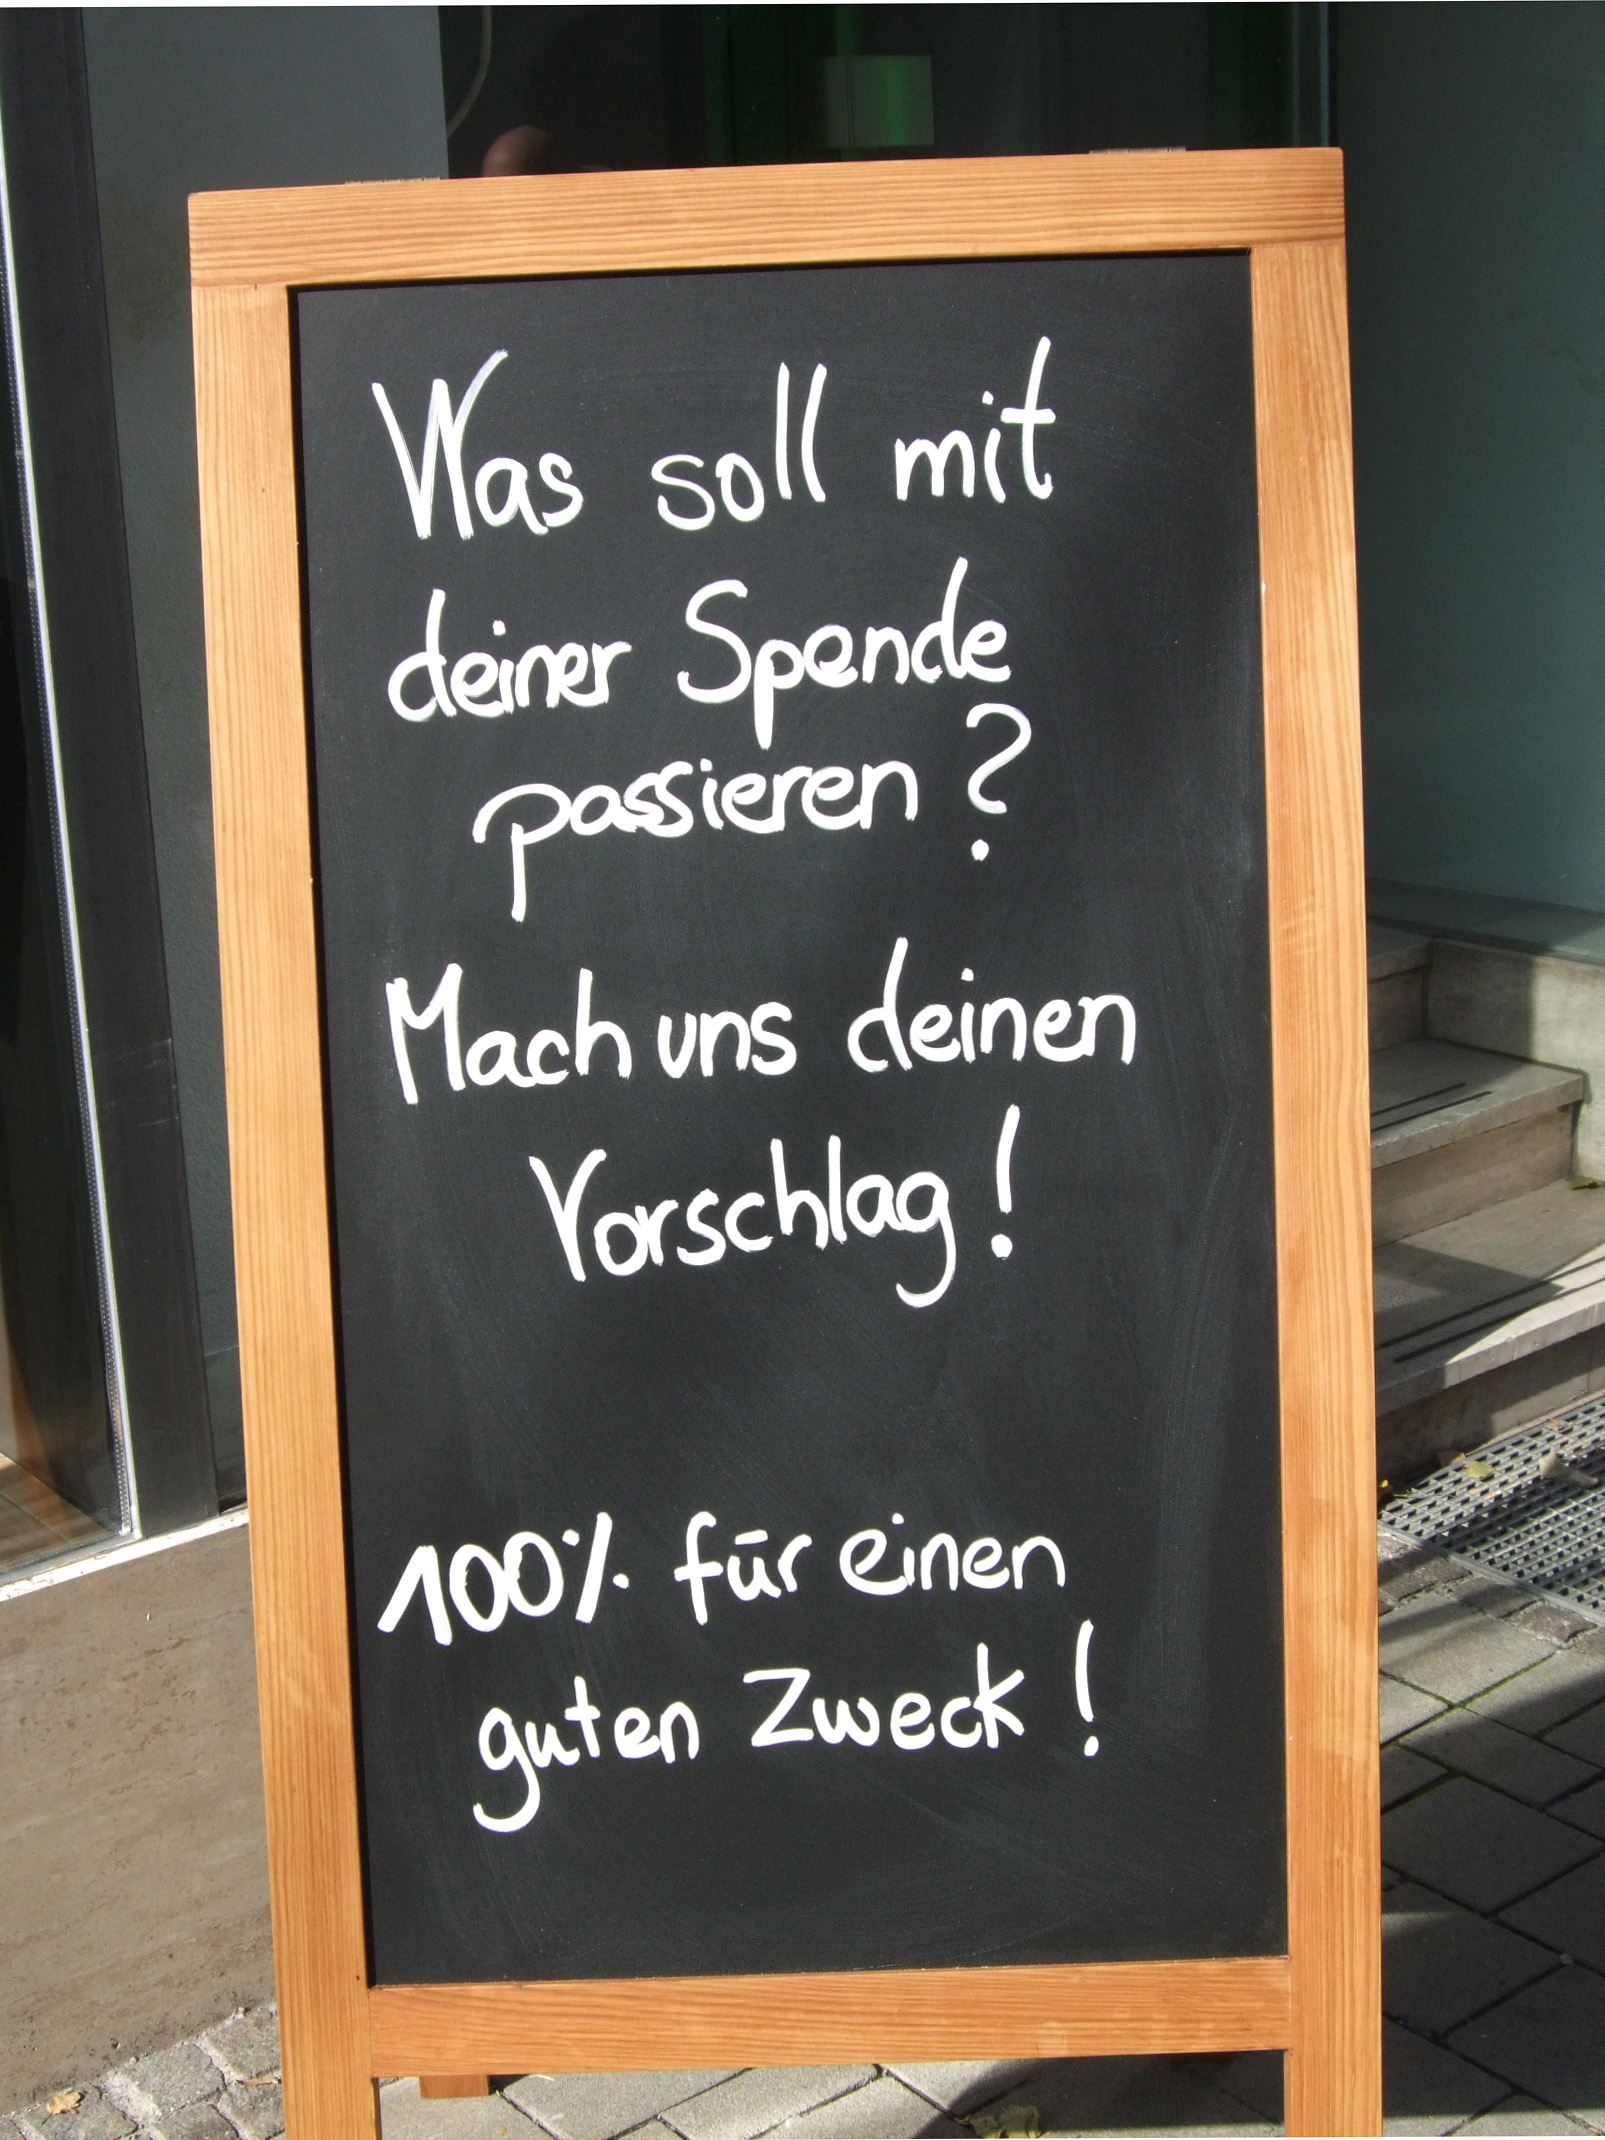 Was soll mit
deiner Spende
passieren?
Mach uns deinen
Vorschlag!
100% für einen
guten Zweck!